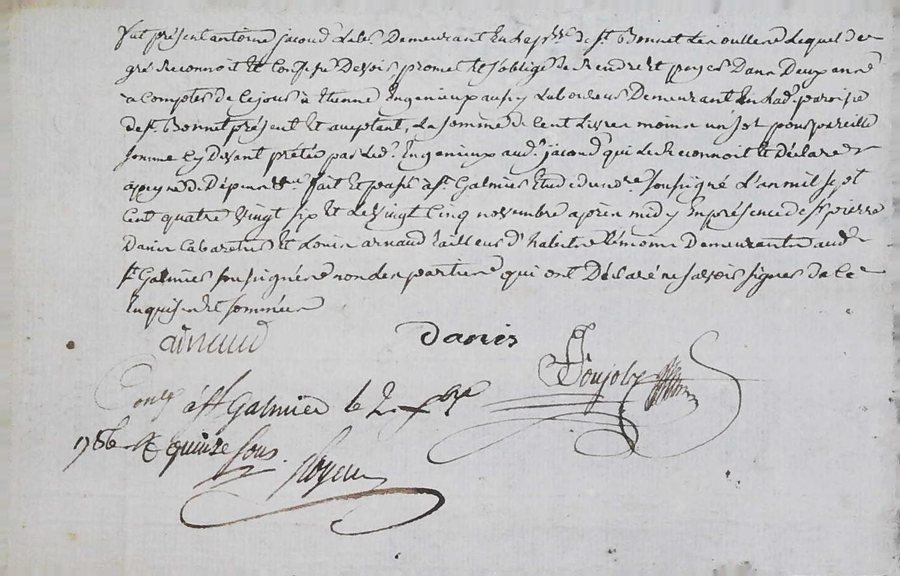 fut présent antoine jacoud Lab.r Demeurant En la p.sse de S.t Bonnet Les oulles Lequel de
gré Reconnoit Et Confesse Devoir promet Et s'oblige de Rendre Et payer Dans Deux ans
a Compter de Ce jour à Etienne Ingenieux aussy Laboureur Demeurant En lad. paroisse
de S.t Bonnet présent Et aceptant, La somme de Cent Livres moins un sol pour pareille
somme Cy Devant prétée par Led. Ingenieux aud. jacoud qui Le Reconnoit Et Déclare
à peyne de Dépens &a. fait Et passé a S.t Galmier Etude du no.re soussigné L'an mil sept
Cent quatre vingt six Et Le vingt Cinq novembre après midy En présence de S.r pierre
Danis Cabaretier Et Louis arnaud tailleur d'habits témoins Demeurants aud.
S.t Galmier soussignés non les parties qui ont Déclaré ne savoir signer de Ce
Enquises Et sommées
arnaud Danis
Poujol
Con.lé à S.t Galmier le 2 Xbre
1786 R quinze sous